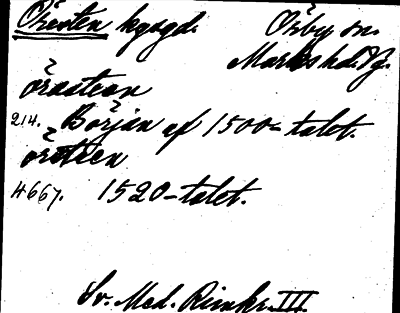 Öresten kgsgd. Örby sn.
Marks hd. Vg.
öræsteen
214. Början af 1500-talet.
öresteen
4667. 1520-talet.
Sv. Med. Rimkr. III.